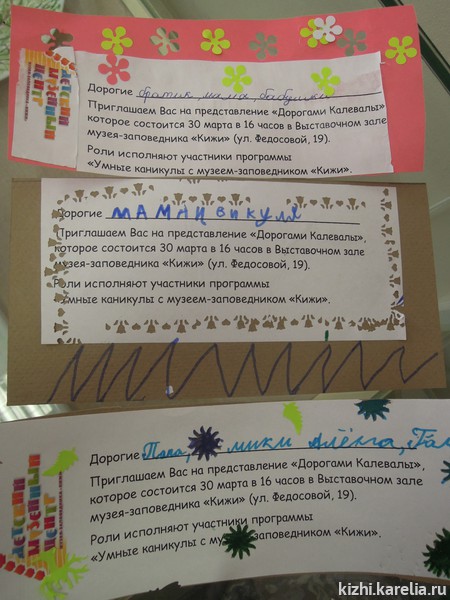 ДЕТСКИЙ
МУЗЕЙНЫЙ
ЦЕНТР
Дорогие братик, мама, бабушка
Приглашаем Вас на представление «Дорогами Калевалы»,
которое состоится 30 марта в 16 часов в Выставочном зале
музея-заповедника «Кижи» (ул. Федосовой, 19).
Роли исполняют участники программы
«Умные каникулы с музеем-заповедником «Кижи».
Дорогие МАМА И ВИКУЛЯ
Приглашаем Вас на представление «Дорогами Калевалы»,
которое состоится 30 марта в 16 часов в Выставочном зале
музея-заповедника «Кижи» (ул. Федосовой, 19).
Роли исполняют участники программы
«Умные каникулы с музеем-заповедником «Кижи».
ДЕТСКИЙ
МУЗЕЙНЫЙ
ЦЕНТР
Дорогие Папа,
Приглашаем Вас на представление «Дорогами Калевалы»,
которое состоится 30 марта в 16 часов в Выставочном зале
музея-заповедника «Кижи» (ул. Федосовой, 19).
Роли исполняют участники программы
«Умные каникулы с музеем-заповедником «Кижи».
kizhi.karelia.ru